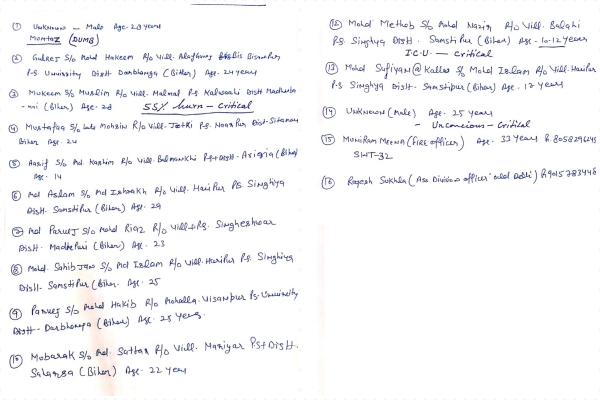 ① Unknown — Male Age. 28 years
Momtaz (DUMB)
② Gulrez S/o Mohd Hakeem R/o Vill.
P.S. University Distt Darbhanga (Bihar) Age. 24 years
③ Mukeem S/o Muslim R/o Vill. Malmal P.S Kalwashi Distt Madhuba
-ni (Bihar) Age. 28 55% burn - critical
④ Mustafaa S/o Late Mohsin R/o Vill. P.S. Noorpur Dist-Sitamau
Bihar Age. 24
⑤ Aasif S/o Md. Kashim R/o Vill. Balmarkhi P.S+Distt. Araria (Bihar)
Age. 14
⑥ Md Aslam S/o Ishaakh R/o Vill. Haripur P.S. Singhiya
Distt. Samstipur (Bihar) Age. 29
⑦ Md S/o Mohd Riaz R/o Vill+P.S. Singheshwar
Distt. Madhepuri (Bihar) Age. 23
⑧ Mohd. Sahib Jaan S/o Md Izlam R/o Vill. Haripur P.S. Singhiya
Distt. Samstipur (Bihar. Age. 25
⑨ Parvej S/o Mohd Hakib R/o Mohalla. Visanpur P.S. University
Distt- Darbhanga (Bihar) Age. 25 years.
⑩ Mobarak S/o Md. Sattar R/o Vill. Maniyar PS+Distt.
Saharsa (Bihar) Age. 22 years
⑫ Mohd Methob S/o Mohd Nazir R/o Vill. Balahi
P.S. Singhya Distt. Samstipur (Bihar) Age - 10-12 years
I.C.U - Critical
⑬ Mohd Sufiyan @ Kallas S/o Mohd Izlam R/o Vill. Haripur
P.S Singhiya Distt. Samstipur (Bihar) Age. 17 years
⑭ Unknown (Male) Age. 25 years
- Unconcious - Critical
⑮ Muniram Meena (Fire officer) Age. 33 years
SWT-32
⑯ Rajesh Sukhla (Ass Division officer Delhi)